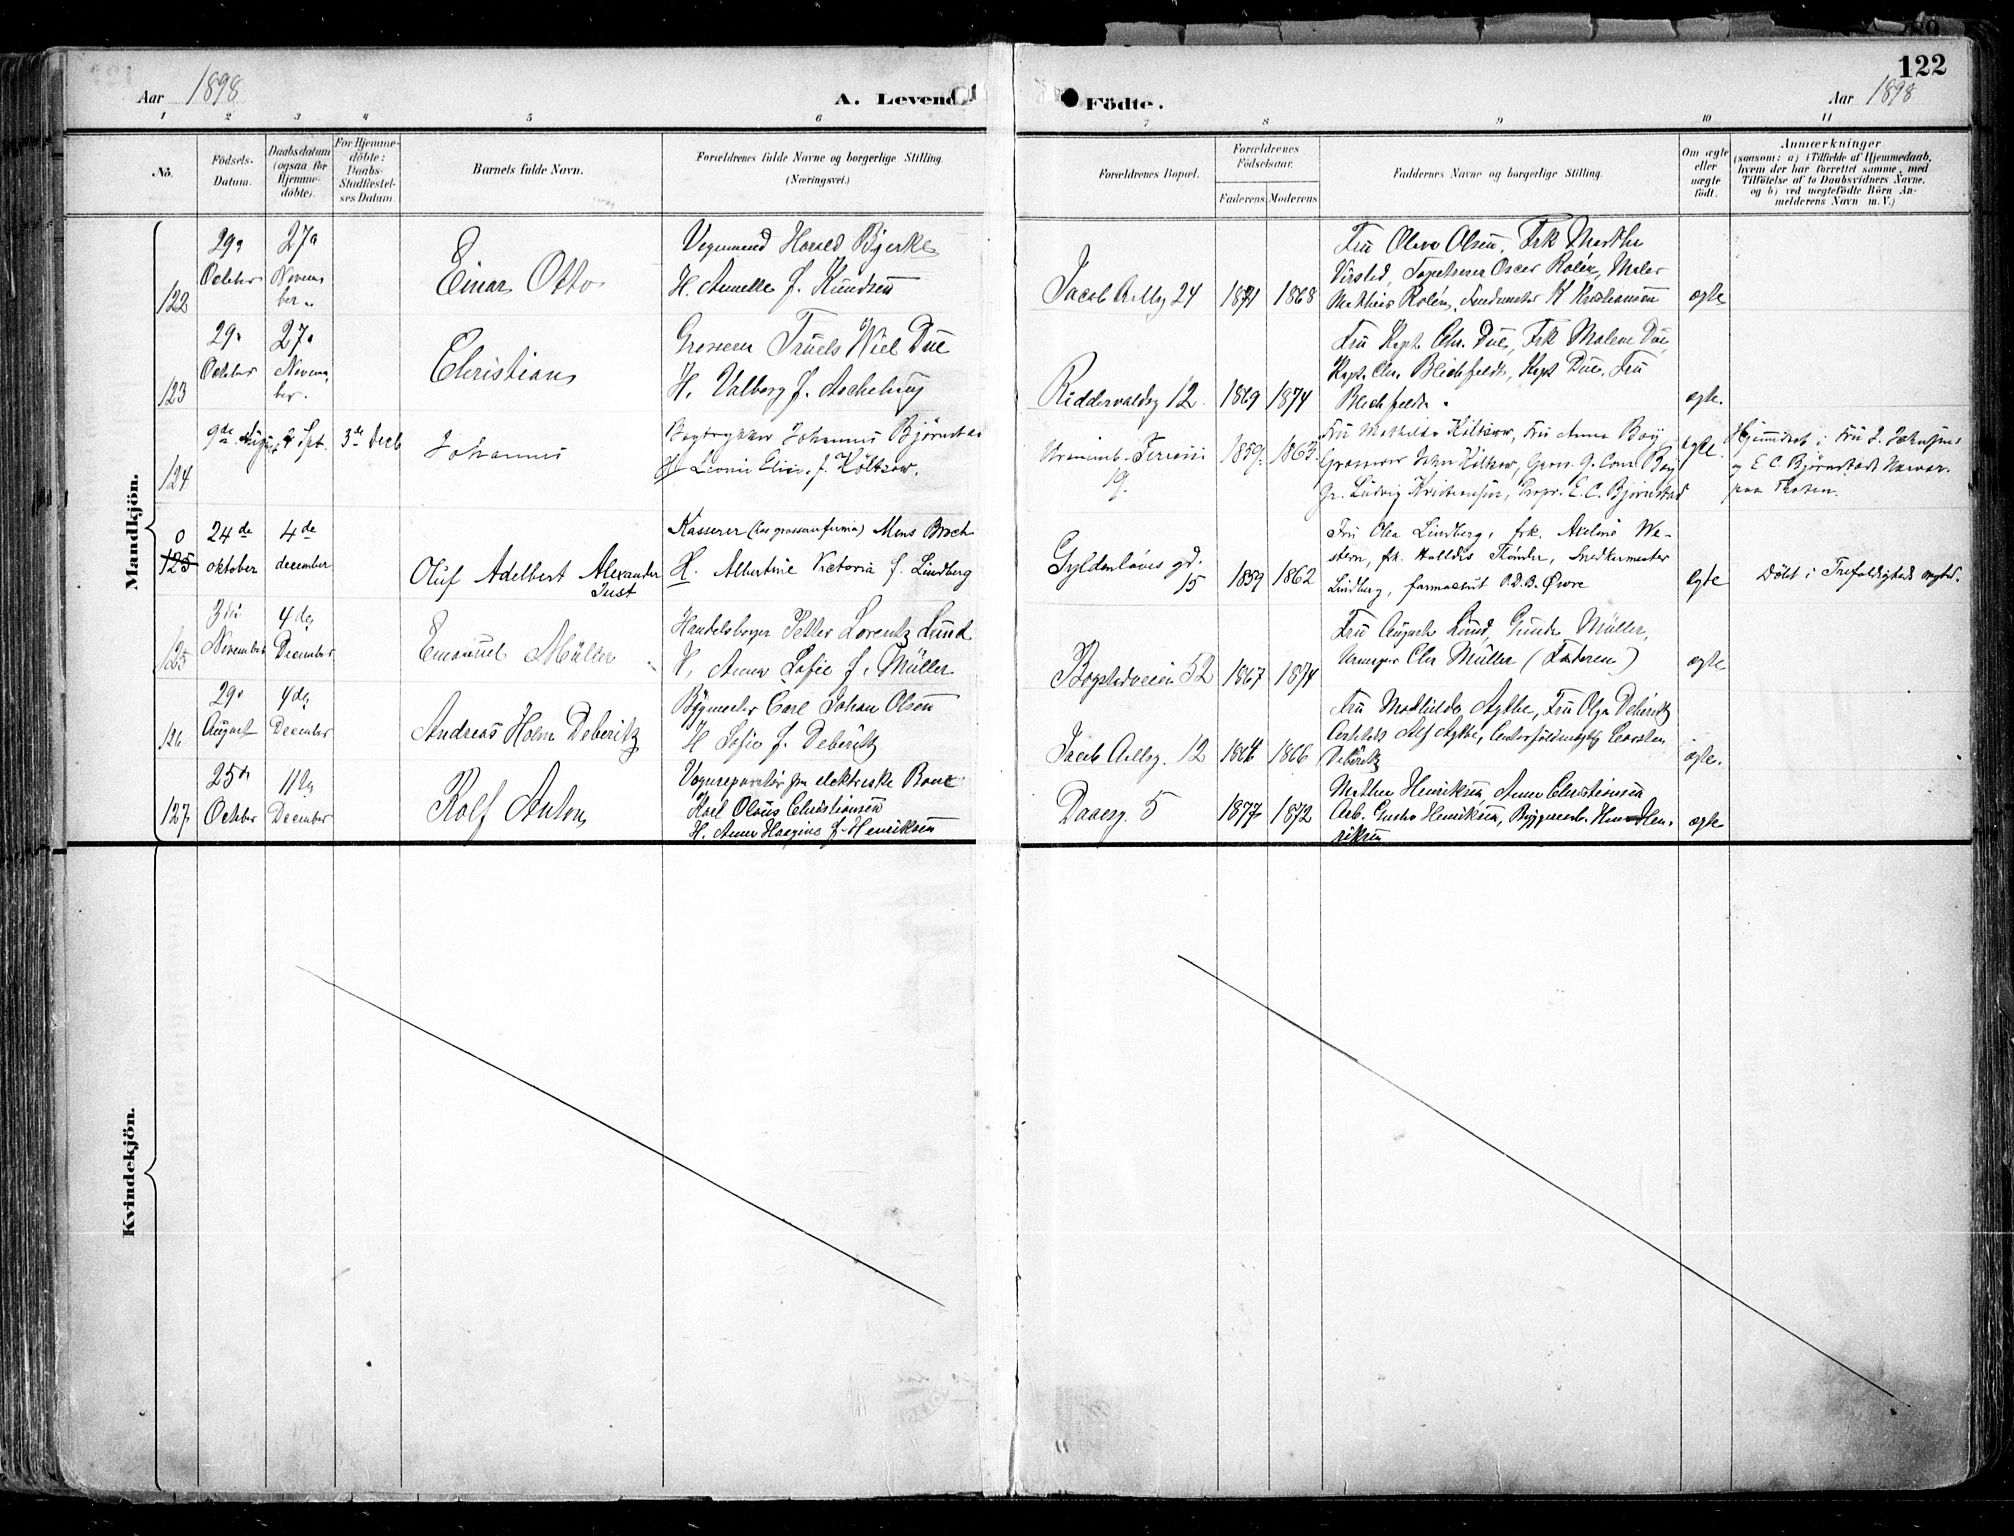 122
Aar 1898
A. Levende
Födte.
Aar 1898
1 2 3 4 5 6 7 8 9 10 11
No.
Födsels-
Datum.
Daabsdatum
(ogsaa for
Hjemme-
döbte).
For Hjemme-
döbte:
Daabs-
Stadfæstel-
ses Datum.
Barnets fulde Navn.
Forældrenes fulde Navne og borgerlige Stilling.
(Næringsvei.)
Forældrenes Bopæl.
Forældrenes
Födselsaar.
Faderens. Moderens.
Faddernes Navne og borgerlige Stilling.
Om ægte
eller
uægte
födt.
Anmærkninger
(saasom: a) i Tilfælde af Hjemmedaab,
hvem der har forrettet samme, med
Tilföielse af to Daabsvidners Navne,
og b) ved uegtefödte Börn An-
melderens Navn m. V.)
Mandkjön.
122
29.
October
27.
Novem
ber.
Einar Otto
Harald Bjerke
H. f. Knudsen
Jacob Aallsg 24
1871 1868
Fru Olava Olsen, Frk Marthe
Tapetserer Oscar Rolén, Maler
Mathias Rolén,
ægte
123
29.
October
27.
Novem
ber.
Christian
Grosserer Truels Wiel Due
H. Valborg f. Aschehoug
Riddervoldsg 12.
1869 1874
Fru Kapt. Chr. Due, Frk Malene Due,
Kapt. Chr. Blichfeldt, Kapt Due, Fru
Blichfeldt.
ægte.
124
9de August
2 Spt.
3de Decb
Johannes
Bogtrykker Johannes Björnstad
H. f. Költzow.
19.
1859. 1863.
Fru Mathilde Költzow, Fru Anna Boy
Grosserer John Költzow, Gross. G. Conr. Boy
Gr. Ludvig Kristensen, Propr. E. C. Björnstad
ægte.
Hjemmedöbt i Fru J. Johnsens
og E. C. Björnstads Nærvær.
paa Thoten.
0
125
24de
oktober
4de
december
Oluf Adelbert Alexander
Just
Kasserer (hos grosserer firma) Mons Broch
H. Albertine Victoria f. Lindberg
Gyldenløves gd.
15
1859 1862
Fru Olea Lindberg, frk.
frk. Snedkermester
Lindberg, farmaceut O.D.B. Øvre
ægte
Döbt i Trefoldigheds mght.
125
3die
November
4de
December
Emanuel Müller
Handelsborger Petter Lorentz Lund
H. Anna Sofie f. Müller
Bogstadveien 52
1867 1874
Fru Augusta Lund, Gunda Müller,
Urmager Chr Müller (Faderen)
ægte
126
29.
August
4de
December
Andreas Holm Deberitz
Bygmester Carl Johan Olsen
H Sofie f. Deberitz
Jacob Aallsg. 12
1864 1866
Fru Mathilde Aythe, Fru Olga Deberitz
Alf Aythe, Carsten
Deberitz
ægte.
127.
25de
October
11te
December
Rolf Anton
Vognreparatör paa elektriske Bane
Karl Olaus Christiansen
H. Anna f. Henriksen
Daaesg. 5
1877 1872
Mathea Henriksen Anna Christiansen
Arb. Henriksen, Hen-
riksen
ægte
Kvindekjön.